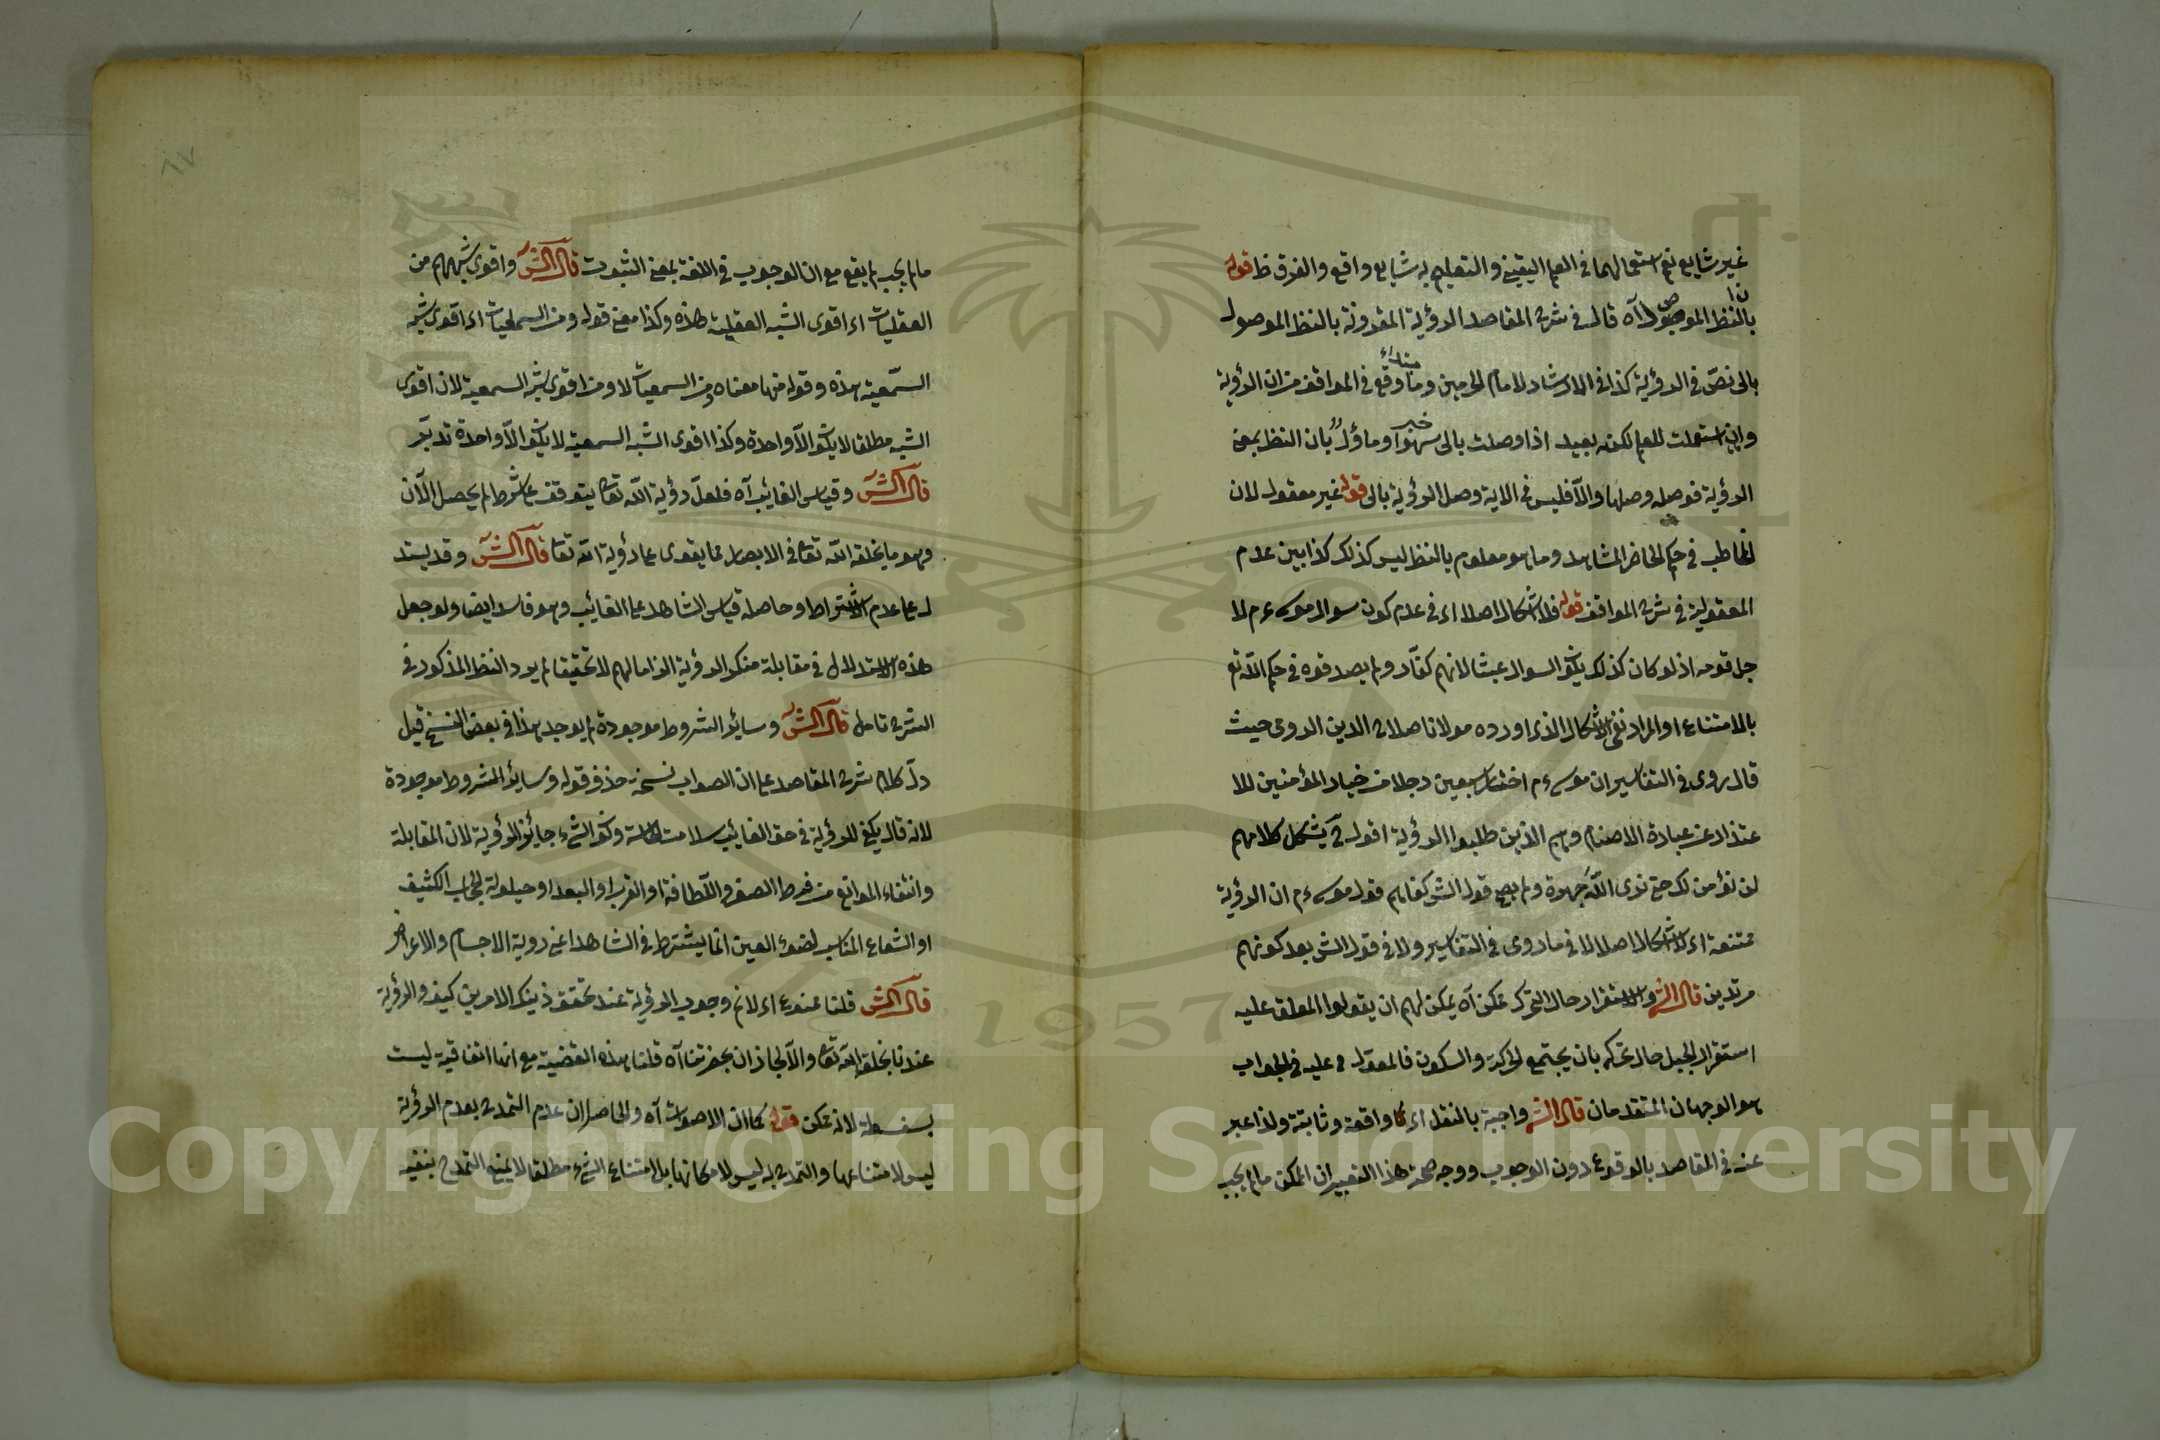 غير شايع نعم استعمالهما في العلم اليقيني والتعليم به شايع واقع والفرق ظ قوله
بالنظر الموصول آه قال في شرح المقاصد الرؤية المقرونة بالنظر الموصول
بالى نص في الرؤية كذا في الارشاد لامام الحرمين وما وقع في المواقف من ان الرؤية
وان استعملت للعلم لكنه بعيد اذا وصلت بالى سهو وما وما ؤل بان النظر بمعنى
الرؤية فوصله وصلها والا فليس في الاية وصل الرؤية بالى قوله غير معقول لان
المخاطب في حكم الحاضر المشاهد وما هو معلوم بالنظر ليس كذلك كذا بين عدم
المعقولية في شرح المواقف قوله فلا اشكال اصلا اى في عدم كون سوال موسى ءم لا
جل قومه اذ لو كان كذلك يكون السوال عبثا لانهم كفار ولم يصدقوه في حكم الله تع
بالامتناع او المراد نفى الاشكال الذى اورده مولانا صلاح الدين الرومى حيث
قال روى في التفاسير ان موسى ءم اختار سبعين رجلا من خيار المؤمنين للا
عتذار عن عبادة الاصنام وهم الذين طلبوا الرؤية اقول فح يشكل كلامهم
لن نؤمن لك حتى نرى الله جهرة ولم يصح قول الش كفاهم قول موسى ءم ان الرؤية
ممتنعة اى لا اشكال اصلا لا في ما روى في التفاسير ولا في قول الش بعد كونهم
مرتدين قال الش والاستقرار حال التحرك ممكن آه يمكن لهم ان يقولوا المعلق عليه
استقرار الجبل حال تحركه بان يجتمع الحركة والسكون فالمعول ح عليه في الجواب
هو الوجهان المتقدمان قال الش واجبة بالنقل اى واقعة وثابتة ولذا عبر
عنه في المقاصد بالوقوع دون الوجوب ووجه صحة هذا التعبير ان الممكن ما لم يجب
ما لم يجب لم يقع مع ان الوجوب في اللغة بمعنى الثبوت قال الش واقوى شبههم من
العقليات اى اقوى الشبه العقلية هذه وكذا معنى قوله ومن السمعيات اى اقوى شبه
السمعية هذه وقوله منها معناه من السمعيات لا ومن اقوى شبه السمعية لان اقوى
الشبه مطلقا لا يكون الا واحدة وكذا اقوى الشبه السمعية لا يكون الا واحدة تدبر
قال الش وقياس الغائب آه فلعل رؤية الله تعا يتوقف على شرط لم يحصل الآن
وهو ما يخلقه الله تعا في الابصار مما يقوى على رؤية الله تعا قال الش وقد يستد
ل على عدم الاشتراط وحاصله قياس الشاهد على الغائب وهو فاسد ايضا ولو جعل
هذه الاستدلال في مقابلة منكر الرؤية الزاما لهم لا تحقيقا لم يرد النظر المذكور في
الشرح تامل قال الش وساير الشروط موجودة لم يوجد هذا في بعض النسخ قيل
دل كلام شرح المقاصد على ان الصواب نسخة حذف قوله وساير الشروط موجودة
لانه قال يكفي للرؤية في حق الغائب سلامت الحاسة وكون الشىء جايز الرؤية لان المقابلة
وانتفاء الموانع من فرط الصغر واللطافة او القرب او البعد او حيلولة الحجاب الكثيف
او الشعاع المناسب لضوء العين انما يشترط في الشاهد اعنى روية الاجسام والاعراض
قال الش قلنا ممنوع اى لا نم وجوب الرؤية عند تحقق ذينك الامرين كيف والرؤية
عندنا بخلق الله تعا والا لجاز ان بحضرتنا آه قلنا هذه القضية مع انها اتفاقية ليست
بسفسطة لانه ممكن قوله كما ان الاصوات آه والحاصل ان عدم التمدح بعدم الرؤية
ليس لامتناعها والتمدح به ليس لامكانها بل امتناع الشىء مطلقا لا يمنع التمدح بنفيه
٨٧
1957
Copyright © King Saud University